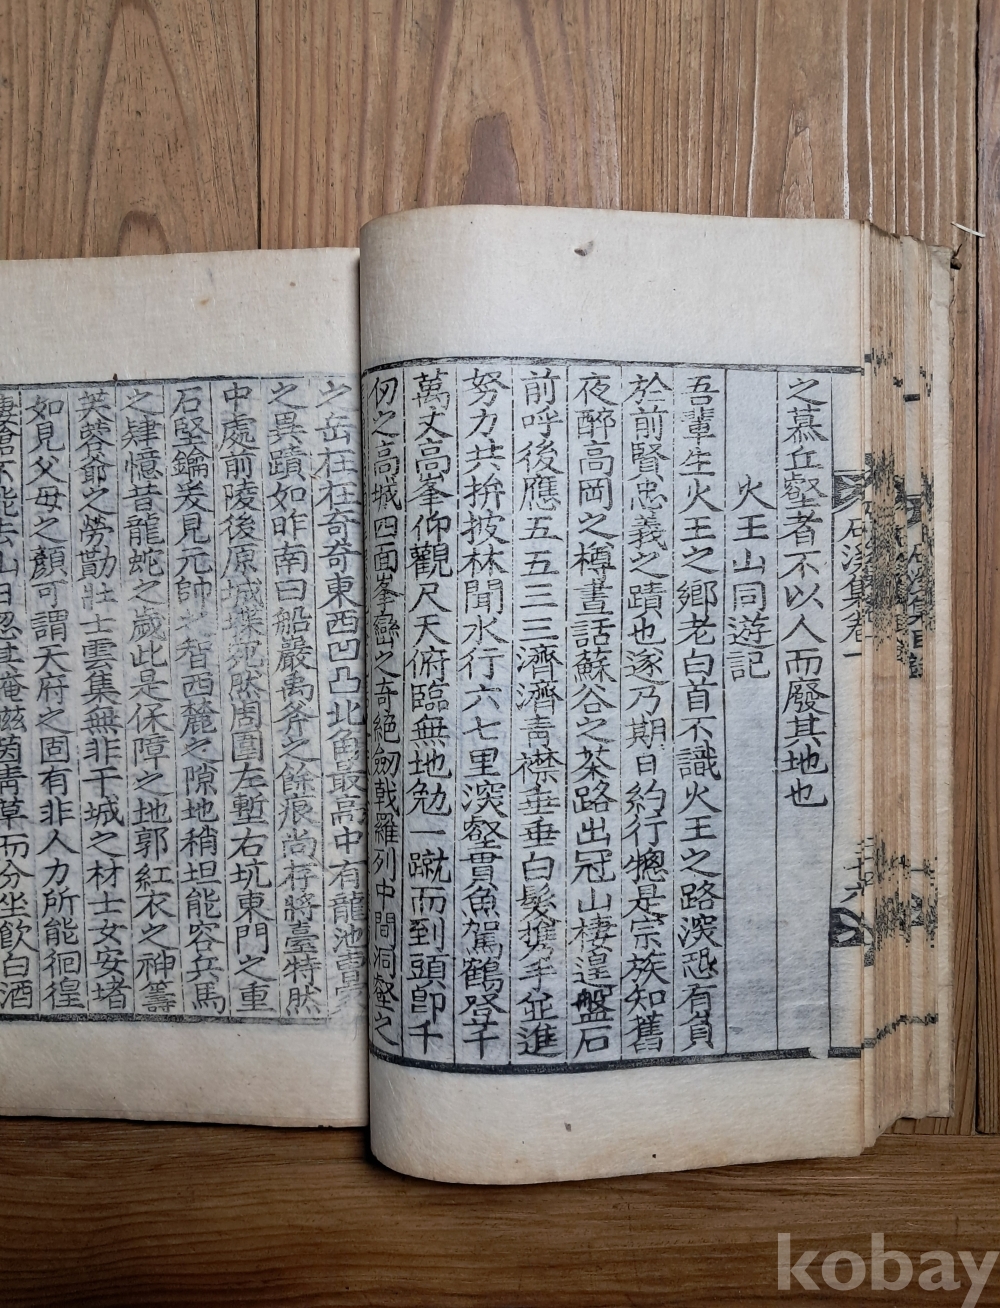 之慕丘壑者不以人而廢其地也
火王山同遊記
吾輩生火王之鄉老白首不識火王之路深恐有負
於前賢忠義之蹟也遂乃期日約行摠是宗族知舊
夜醉高岡之樽晝話蘇谷之茶路出冠山棲遑盤石
前呼後應五五三三濟濟靑襟垂垂白髮携手並進
努力共拚披林聞水行六七里深壑貫魚駕鶴登千
萬丈高峯仰觀尺天俯臨無地勉一蹴而到頭卽千
仞之高城四面峯巒之奇絶劒戟羅列中間洞壑之
之岳在在奇奇東西凹凸北角最高中有龍池曹
之異蹟如昨南曰船嚴禹斧之餘痕尙存將臺特然
中處前陵後原城堞宛然周圍左塹右坑東門之重
石堅鑰爰見元帥智西麓之隙地稍坦能容兵馬
之肆憶昔龍蛇之歲此是保障之地郭紅衣之神籌
芙蓉爺之勞勩壯士雲集無非干城之材士女安堵
如見父母之顔可謂天府之固有非人力所能徊徨
不能去山日忽其掩玆茵靑草而分坐飮白酒
溪集卷一
kobay